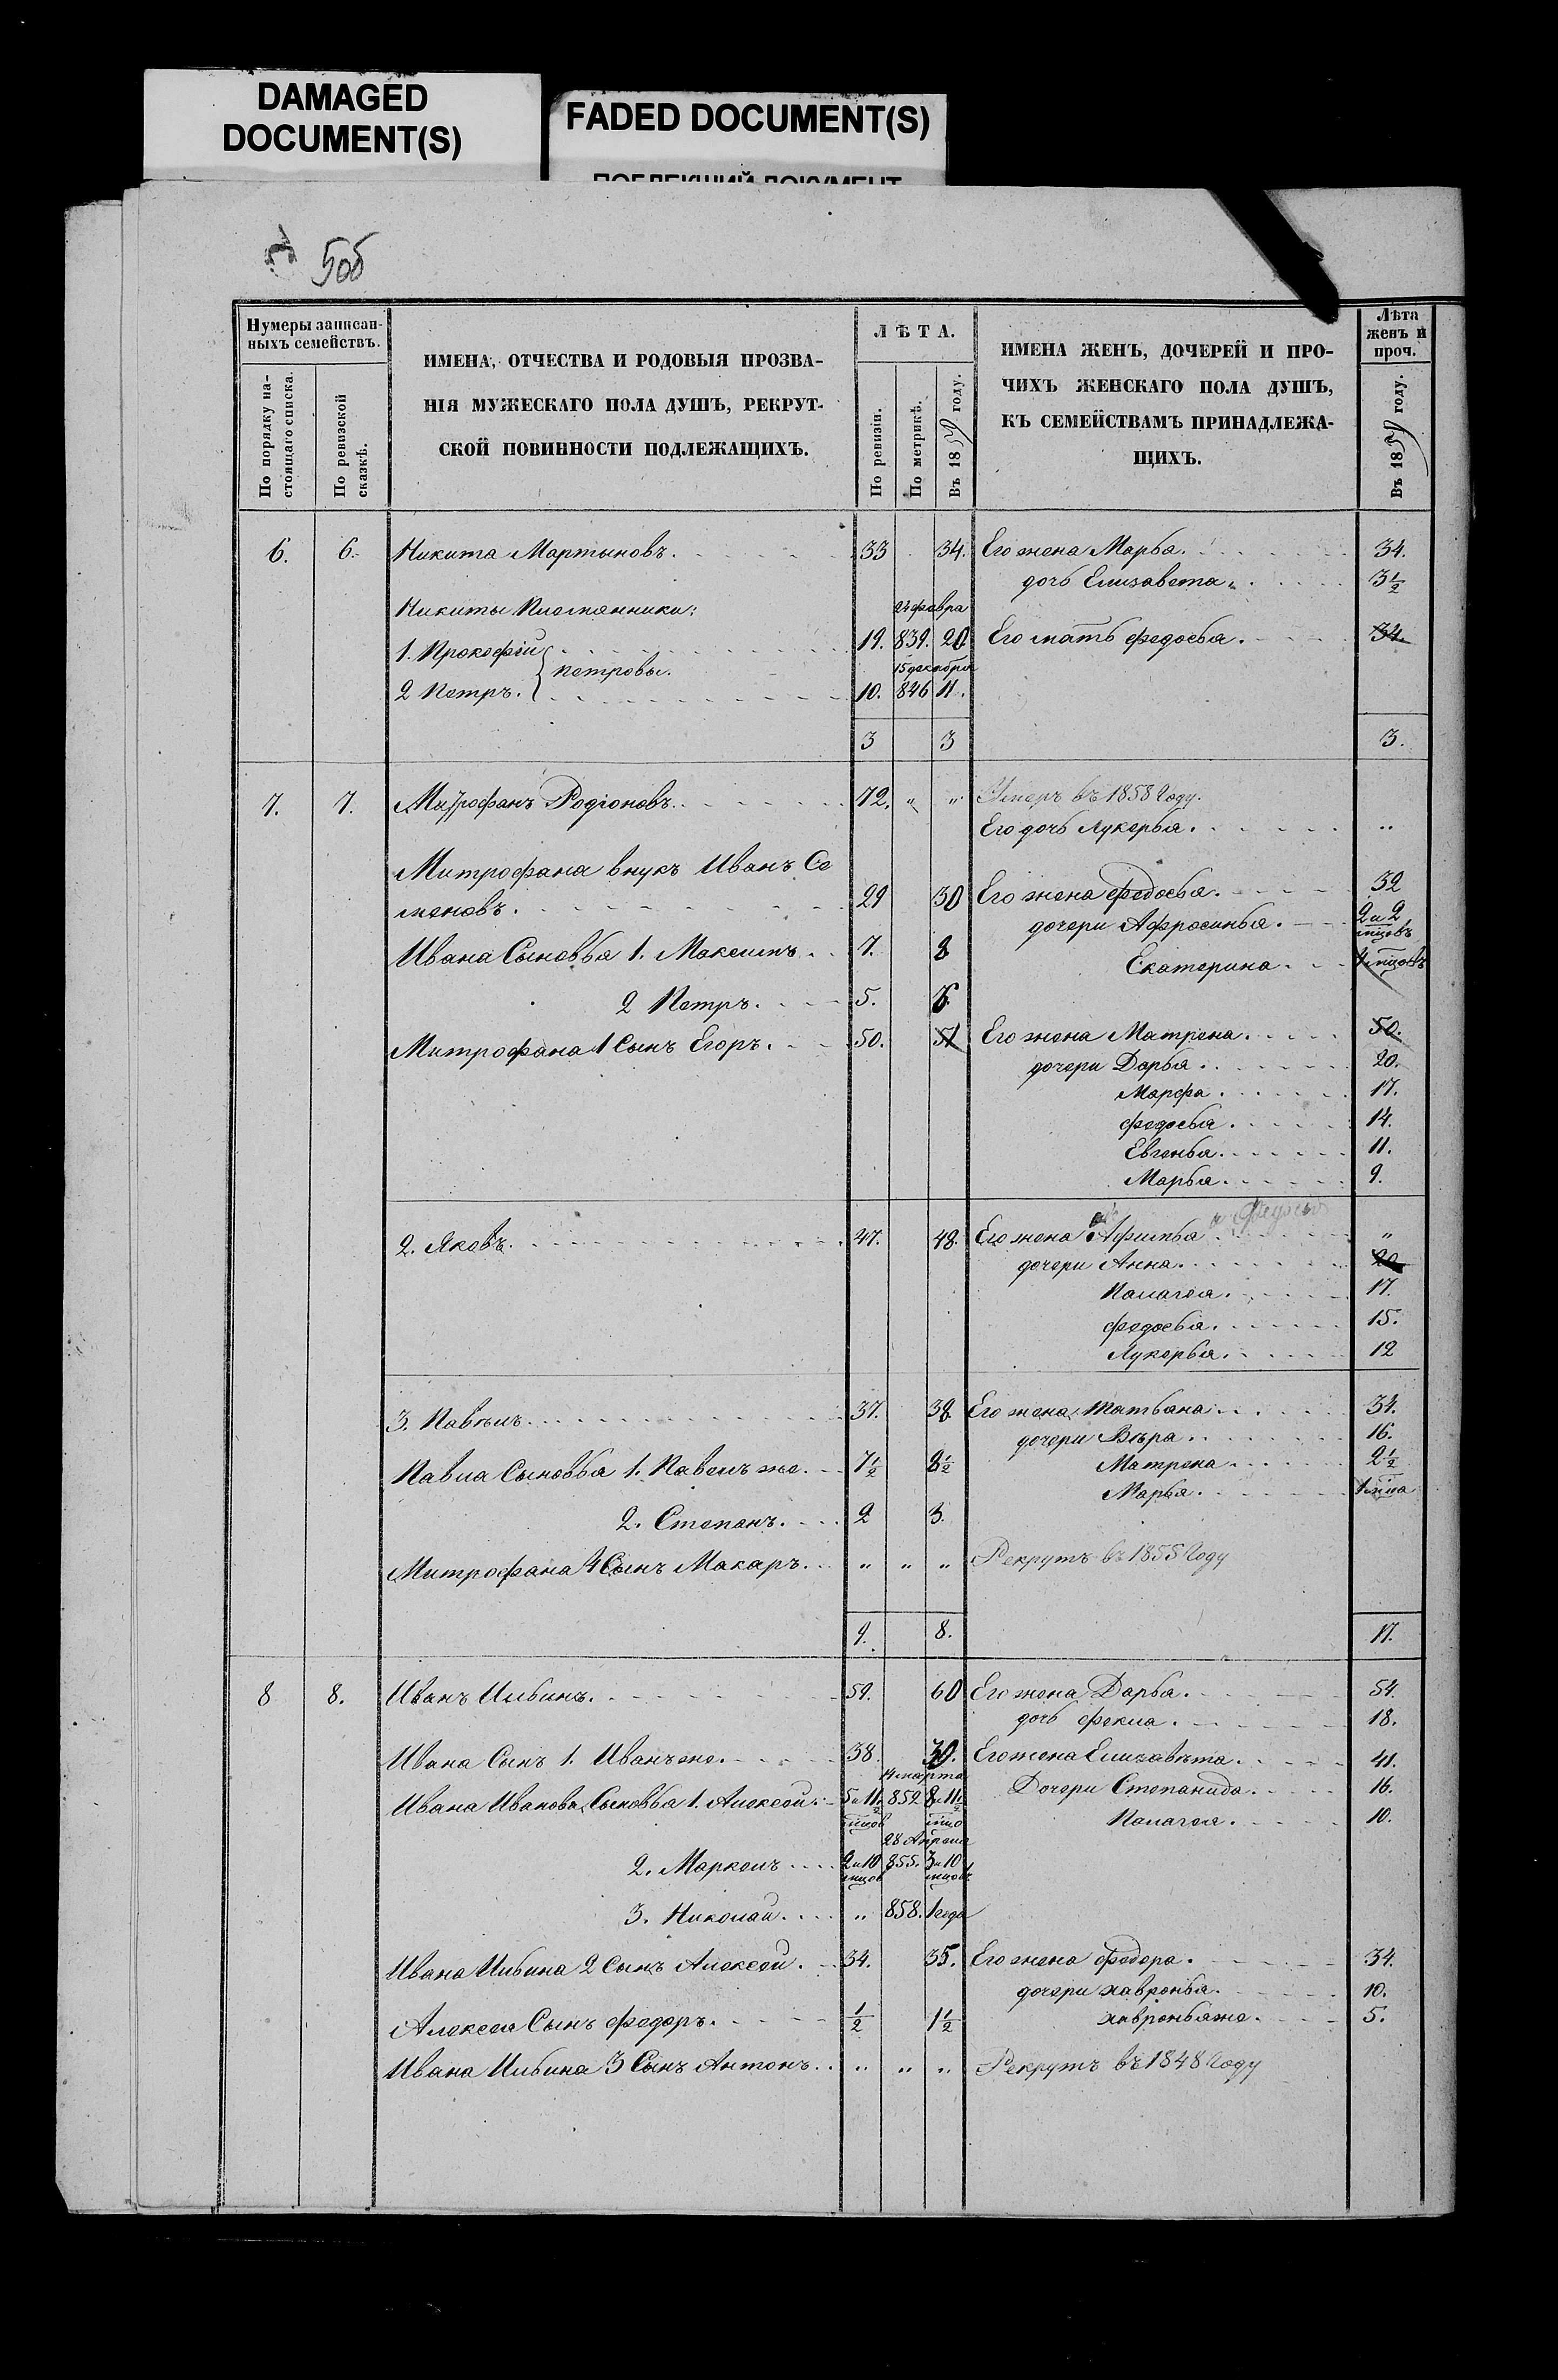 DAMAGED
DOCUMENT(S)
FADED DOCUMENT(S)
506
Нумеры записан-
ныхъ семействъ.
По порядку на-
стоящаго списка.
По ревизской
сказкѣ.
ИМЕНА, ОТЧЕСТВА И РОДОВЫЯ ПРОЗВА-
НІЯ МУЖЕСКАГО ПОЛА ДУШЪ, РЕКРУТ-
СКОЙ ПОВИННОСТИ ПОДЛЕЖАЩИХЪ.
ЛѢТА.
По ревизіи.
По метрикѣ.
Въ 1859 году.
ИМЕНА ЖЕНЪ, ДОЧЕРЕЙ И ПРО-
ЧИХЪ ЖЕНСКАГО ПОЛА ДУШЪ,
КЪ СЕМЕЙСТВАМЪ ПРИНАДЛЕЖА-
ЩИХЪ.
Лѣта
женъ и
проч.
Въ 1859 году.
6. 6. Никита Мартыновъ. 33 34. Его жена Марья. 34.
дочь Елизавета. 3½
Никиты Племянники: 24 февра
1. Прокофій 19. 839. 20 Его мать федосья. 34.
петровы. 15 декабря
2 Петръ. 10. 846 11.
3 3 3.
7. 7. Митрофанъ Родіоновъ. 72. " " Умеръ въ 1858 Году.
Его дочь Лукерья. "
Митрофана внукъ Иванъ Се
меновъ. 29 30 Его жена федосья. 32
дочери Афросинья. 2 и 2 мцовъ
Ивана Сыновья 1. Максимъ. 7. 8
Екатерина. 4 мцовъ
2 Петръ. 5. 6.
Митрофана 1 Сынъ Егоръ. 50. 51 Его жена Матрена. 50.
дочери Дарья. 20.
Марфа. 17.
федосья. 14.
Евгенья. 11.
Марья. 9.
2. Яковъ. 47. 48. Его жена Афимья "
дочери Анна. 20
Палагея. 17.
федосья. 15.
Лукерья. 12
3. Павелъ. 37. 38 Его жена Татьяна. 34.
дочери Вѣра. 16.
Павла Сыновья 1. Павелъ же. 7½ 8½ Матрена. 2½
Марья. 1 мца
2. Степанъ. 2 3.
Митрофана 4 Сынъ Макаръ. " " " Рекрутъ въ 1855 Году
9. 8. 17.
8 8. Иванъ Ильинъ. 59. 60 Его жена Дарья. 54.
дочь фекла. 18.
Ивана Сынъ 1. Иванъ же. 38. 39. Его жена Елизавѣта. 41.
14 марта
Ивана Иванова Сыновья 1. Алексей. 5 и 11½ мцов 852 8 и 11½ мцо Дочери Степанида. 16.
Палагея. 10.
28 Апреля
2. Маркелъ. 2 и 10 мцов 855. 3 и 10 мцовъ
3. Николай. " 858. 1 года
Ивана Ильина 2 Сынъ Алексей. 34. 35. Его жена федора. 34.
дочери хавронья. 10.
Алексея Сынъ федоръ. ½ 1½ хавроньяже. 5.
Ивана Ильина 3 Сынъ Антонъ. " " " Рекрутъ въ 1848 Году